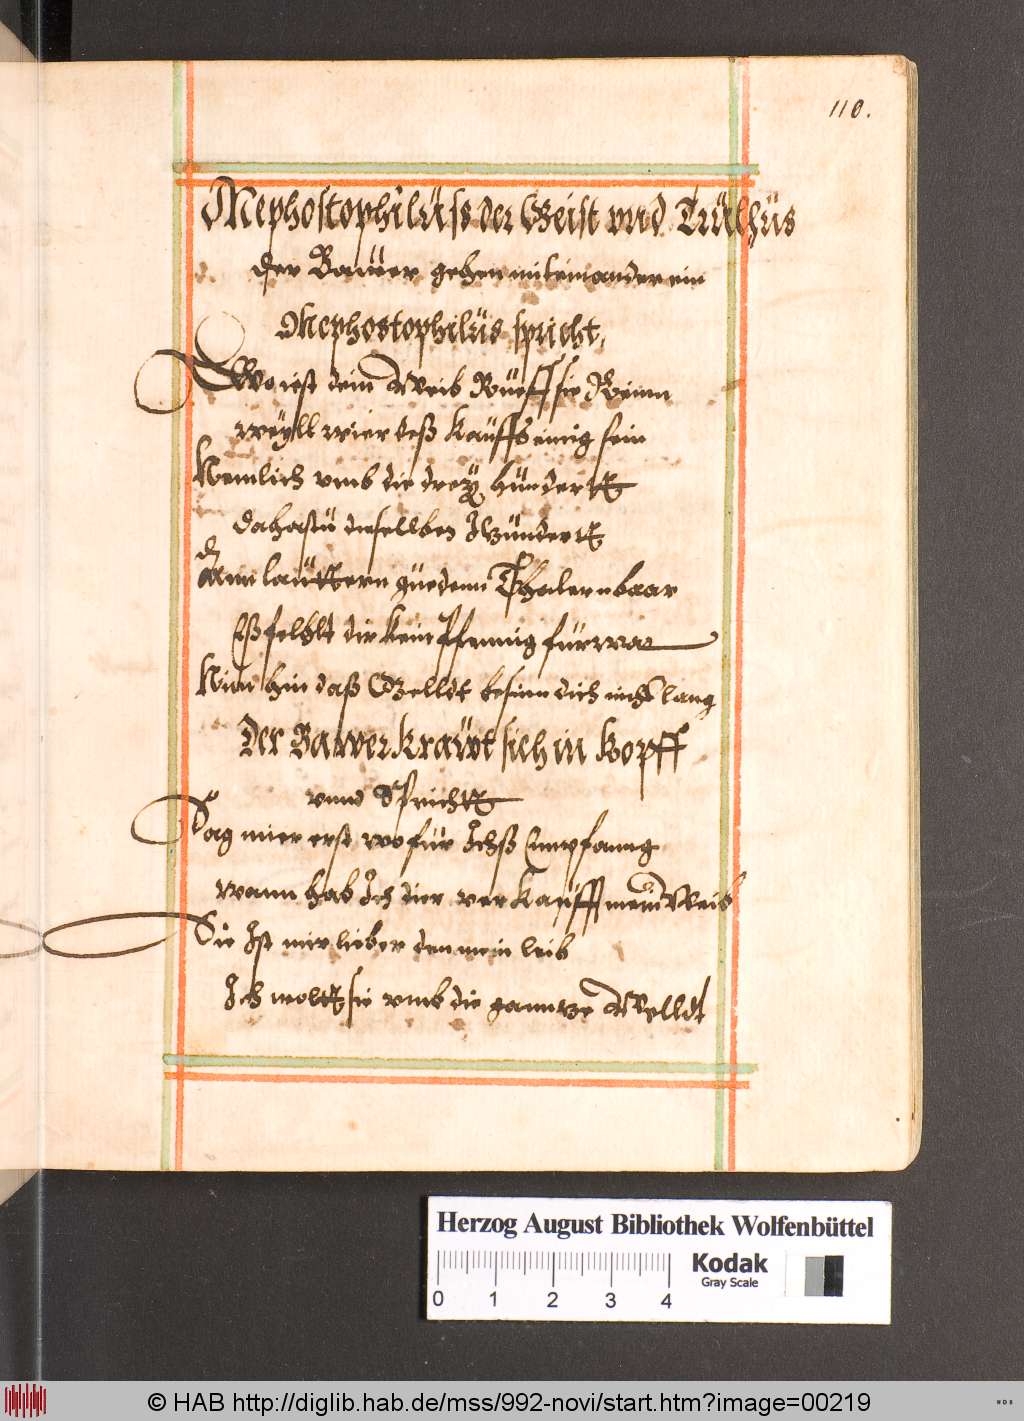 110.
Mephostophiluss der Geist vnd Trülhüs
der Bauer gehen miteinander ein
Mephostophilüs spricht,
Wo ist dein Weib Rüeff sie Rein
weyll wier deß Kauffs einig sein
Nemlich vmb die drey hündertt
da hastü dieselben
lauttern güedenn Thalern baar
Eß fehlt dir kein Pfennig fürwar
Nim hin daß Gelldt besinn dich nicht lang
Der Bawer krawt sich in kopff
vnnd Sprichtt
Sag mier erst wo für Ichß Empfanng
wann hab Ich dier verkaufft mein Weib
Sie Ist mir lieber den mein leib
Ich wollt sie vmb die gannze Welldt
Herzog August Bibliothek Wolfenbüttel
Kodak
Gray Scale
0 1 2 3 4
© HAB http://diglib.hab.de/mss/992-novi/start.htm?image=00219